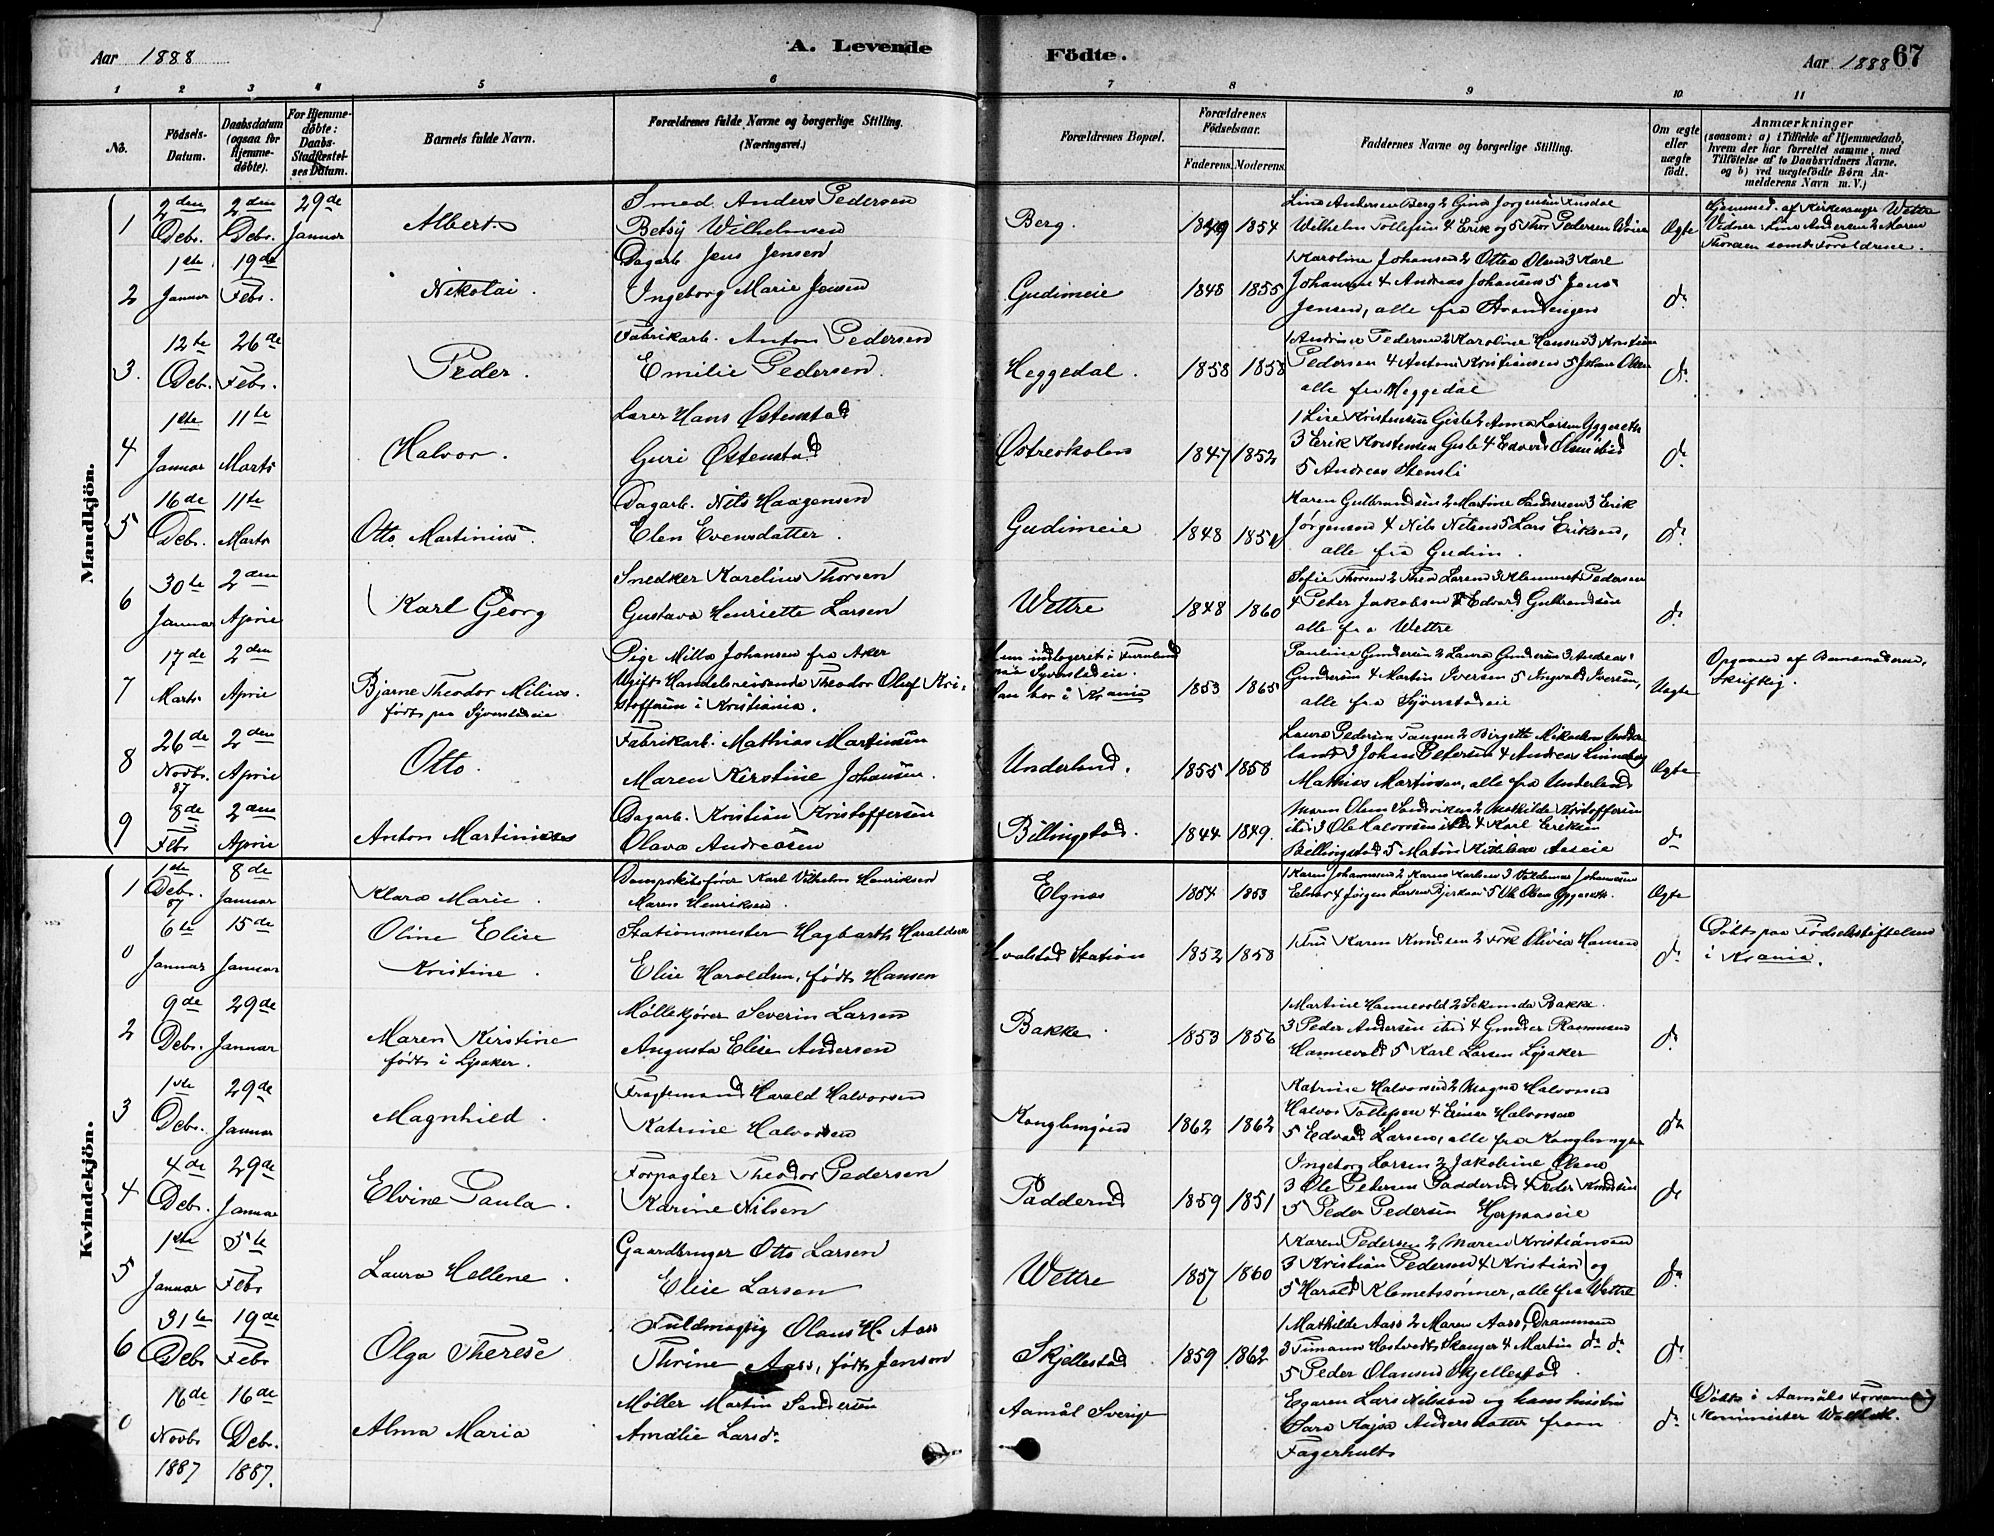 Aar 1888
A. Levende
Födte.
Aar 1888
67
1 2 3 4 5 6 7 8 9 10 11
No.
Födsels-Datum.
Daabsdatum (ogsaa for Hjemme-døbte).
For Hjemme-døbte: Daabs-Stadfæstel-ses Datum.
Barnets fulde Navn.
Forældrenes fulde Navne og borgerlige Stilling. (Næringsvei.)
Forældrenes Bopæl.
Forældrenes Födselsaar.
Faderens. Moderens.
Faddernes Navne og borgerlige Stilling.
Om ægte eller uægte født.
Anmærkninger
(saasom: a) i Tilfælde af Hjemmedaab, hvem der har forrettet samme, med Tilføielse af to Daabsvidners Navne, og b) ved uægtefødte Börn An-melderens Navn m. V.)
Mandkjön.
1 2den Debr. 2den Debr. 29de Januar Albert. Smed Anders Pedersen
Betsy Wilhelmsen Berg. 1849 1854 Wilhelm Tollefsen 4 Erik og 5 Thor Pedersen Ægte
Hjemmed. af Kirkesanger Wettre
Vidner: Lina Andersen 2 Maren
Thoresen samt Forældrene.
2 1ste Januar 19de Febr. Nikolai. Dagarb. Jens Jensen
Ingeborg Marie Jensen Gudimeie 1848 1855 1 Karoline Johansen 2 Ottea Olsen 3 Karl
Johansen 4 Andreas Johansen 5 Jens
Jensen, alle fra Strandengen do
3. 12te Debr. 26de Febr. Peder. Fabrikarb. Anton Pedersen
Emilie Pedersen. Heggedal. 1858 1858 Pedersen 2 Karoline Hansen 3 Kristian
Pedersen 4 Anton Kristiansen 5 Johan Olsen
alle fra Heggedal do
4 1ste Januar 11te Marts Halvor. Lærer Hans Østenstad
Guri Østenstad Østreskolen 1847 1852 1 Lise Kristensen Gisle 2 Anna Larsen Yggeseth
3 Erik Kristensen Gisle 4 Edvard
5 Andreas Stensli do
5 16de Debr. 11te Marts Otto Martinius. Dagarb. Nils Haagensen
Elen Evensdatter. Gudimeie 1848 1851 Karen Gulbrandsen 2 Martine Andersen 3 Erik
Jørgensen 4 Nils Nilsen 5 Lars Eriksen,
alle fra Gudim. do
6 30te Januar 2den April Karl Georg Snedker Karelius Thorsen
Gustava Henriette Larsen Wettre 1848 1860 Sofie Thorsen 2 Thea Larsen 3 Klemmet Pedersen
4 Peter Jakobsen 5 Edvard Gulbrandsen
alle fra Wettre do
7 17de Marts 2den April Bjarne Theodor Milius.
født paa Syverstadeie Pige Milla Johansen fra Aker
Ugift Handelsreisende Theodor Oluf Kri-
stoffersen i Kristiania. 1853 1865 Pauline Gundersen 2 Laura Gundersen 3 Andreas
Gundersen 4 Martin Iversen 5 Ingvald Iversen,
alle fra Syverstadeie Uægte
Opgaven af Barnemoderen,
skriftlig.
8 26de Novbr. 87 2den April Otto. Fabrikarb. Mathias Martinsen
Maren Kirstine Johansen. Underlund. 1855 1858 Laura Pedersen Tangen 2 Birgitte Mikaelsen Under
land 3 Johan Petersen 4 Andreas Linneberg
Mathias Martinsen, alle fra Underlund Ægte
9 8de Febr. 2den April Anton Martinius Dagarb. Kristian Kristoffersen
Olava Andreasen Billingstad. 1844 1849. Maren Olsen Sandviken 2 Mathilde Kristoffersen
ibid 3 Ole Halvorsen ibid 4 Karl Eriksen
Billingstad 5 do
Kvindekjön.
1 1ste Debr. 87 8de Januar Klara Marie. Dampskibsfører Karl Vilhelm Henriksen
Maren Henriksen. Elgnes 1854 1853 1 Karen Johannesen 2 Karen Karlsen 3 Valdemar Johannesen
4 Jørgen Larsen Bjerkaas 5 Ole Olsen Yggeseth. Ægte
0 6te Januar 15de Januar Oline Elise
Kristine. Stationsmester Hagbarth Haraldsen
Elise Haraldsen, født Hansen Hvalstad Station 1852 1858 1 Fru Karen Knudsen 2 Frk Olivia Hansen do
Døbt paa Fødselsstiftelsen
i Krania.
2 9de Debr. 29de Januar Maren Kirstine
født i Lysaker. Møllekjører Severin Larsen
Augusta Elise Andersen Bakke 1853 1856 1 Martine Hannevold 2 Sekunda Bakke.
3 Peder Andersen ibid 4 Gunder Rasmussen
Hannevold 5 Karl Larsen Lysaker do
3 1ste Debr. 29de Januar Magnhild. Fragtemand Harald Halvorsen
Katrine Halvorsen Konglungen 1862 1862 Katrine Halvorsen 2 Magna Halvorsen
Halvor Tollefsen 4 Einar Halvorsen
5 Edvard Larsen, alle fra Konglungen do
4 4de Debr. 29de Januar Elvine Paula. Forpagter Theodor Pedersen
Karine Nilsen Paddernd 1859 1851 Ingeborg Larsen 2 Jakobine Olsen
3 Ole Petersen Paddernd 4 Peder Knudsen
5 Peder Pedersen do
5 1ste Januar 5te Febr Laura Hellene. Gaardbruger Otto Larsen
Elise Larsen Wettre 1857 1860 1 Karen Pedersen 2 Maren Kristiansen
3 Kristian Pedersen 4 Kristian og
5 Harald Klemetssønner, alle fra Wettre do
6 31te Debr 19de Febr Olga Therese Fuldmægtig Olaus H. Aass
Thrine Aass, født Jensen Skjellestad 1859 1862 1 Mathilde Aass 2 Maren Aass, Drammen
3 Timann Hestvedt Skauger 4 Martin do do
5 Peder Olausen Skjellestad do
0 16de Novbr 1887 16de Debr. 1887. Alma Maria Møller Martin Sandersen
Amalie Larsdr Aamål Sverige Egaren Lars Nilsson og hans hustru
Sara Kajsa Andersdatter från
Fagerhult do
Døbt i Aamåls Forsamling
Komminister